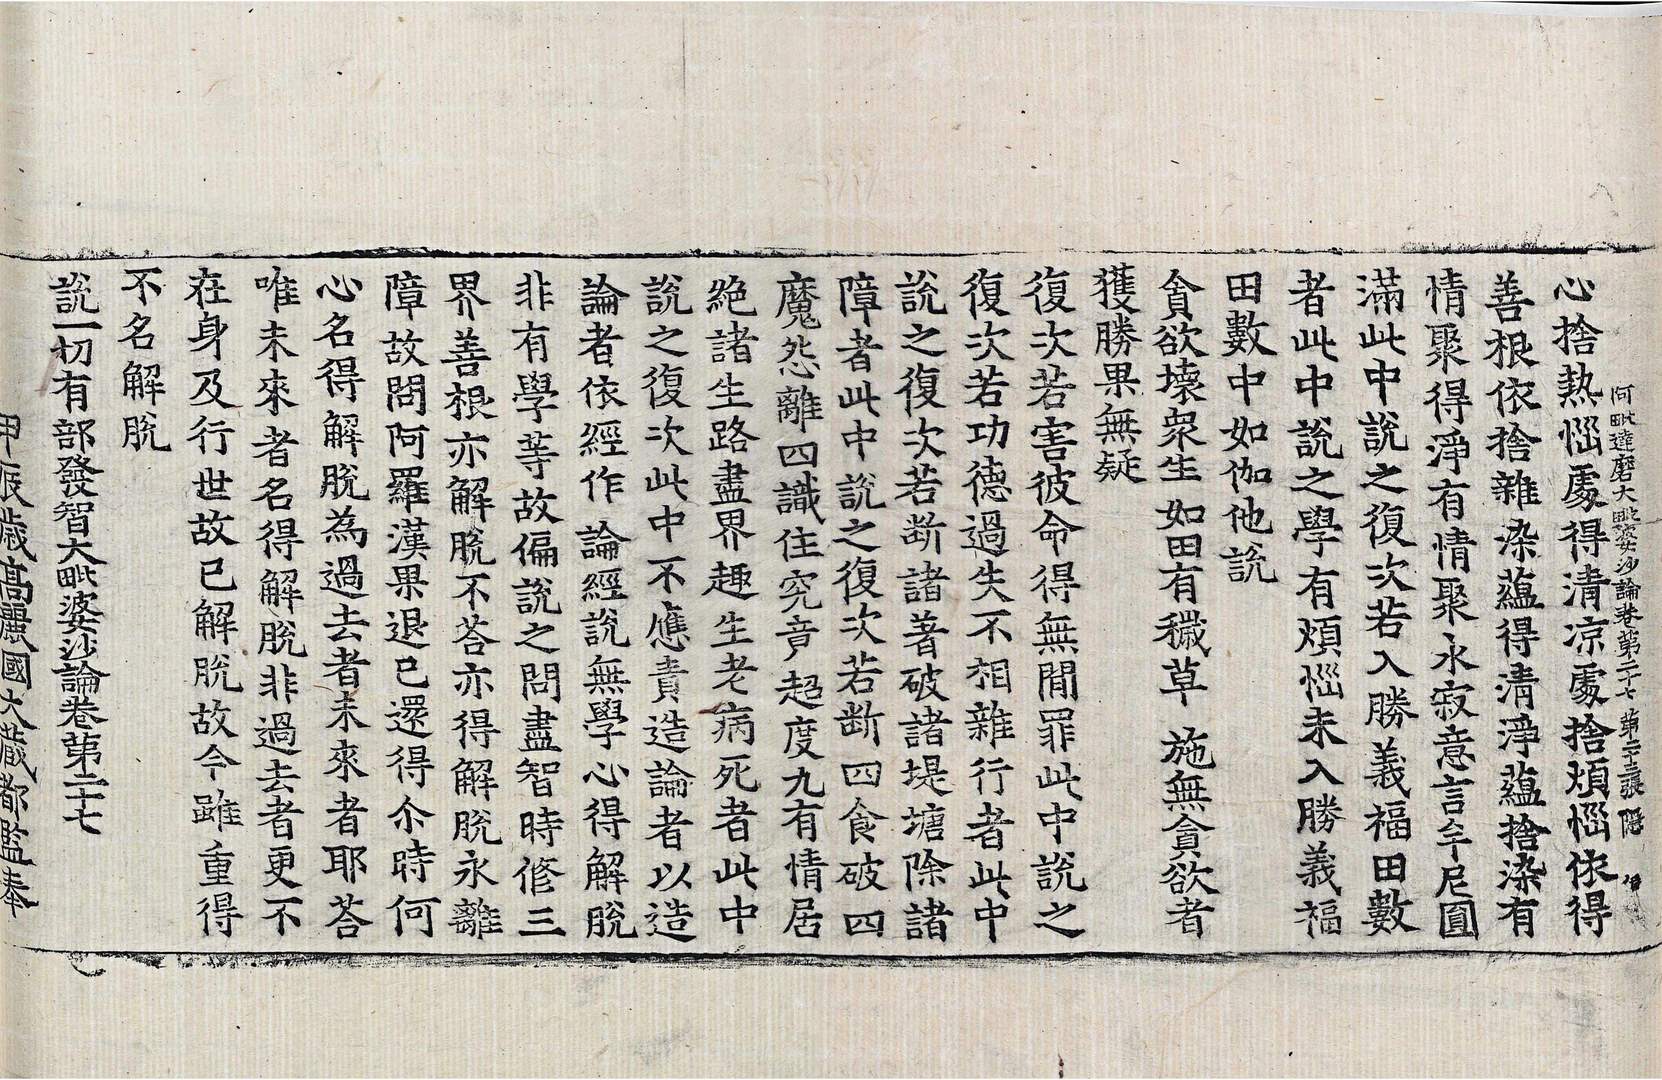 阿毗達磨大毗婆沙論卷第二十七 第二十三張 隱
心捨熱惱處得清涼處捨煩惱依得
善根依捨雜染蘊得清淨蘊捨染有
情聚得淨有情聚永寂意言牟尼圓
滿此中說之復次若入勝義福田數
者此中說之學有煩惱未入勝義福
田數中如伽他說
貪欲壞衆生 如田有穢草 施無貪欲者
獲勝果無疑
復次若害彼命得無間罪此中說之
復次若功德過失不相雜行者此中
說之復次若斷諸著破諸堤塘除諸
障者此中說之復次若斷四食破四
魔怨離四識住究竟超度九有情居
絕諸生路盡界趣生老病死者此中
說之復次此中不應責造論者以造
論者依經作論經說無學心得解脫
非有學等故偏說之問盡智時修三
界善根亦解脫不荅亦得解脫永離
障故問阿羅漢果退已還得尒時何
心名得解脫為過去者未來者耶荅
唯未來者名得解脫非過去者更不
在身及行世故已解脫故今雖重得
不名解脫
說一切有部發智大毗婆沙論卷第二十七
甲辰歲高麗國大藏都監奉